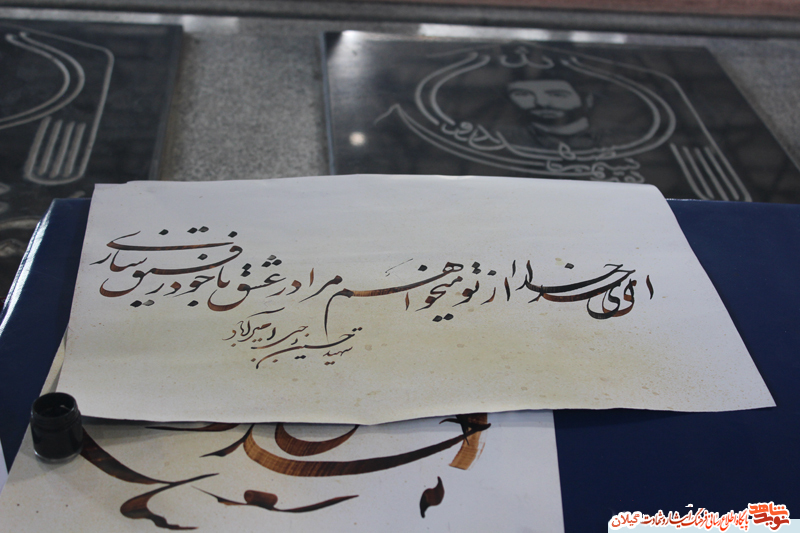 ای خدا از تو میخواهم مرا در عشق با خود رفیق سازی
شهید حسین رجبی امیرآباد
نوید شاهد پایگاه اطلاع رسانی فرهنگ ایثار و شهادت گیلان